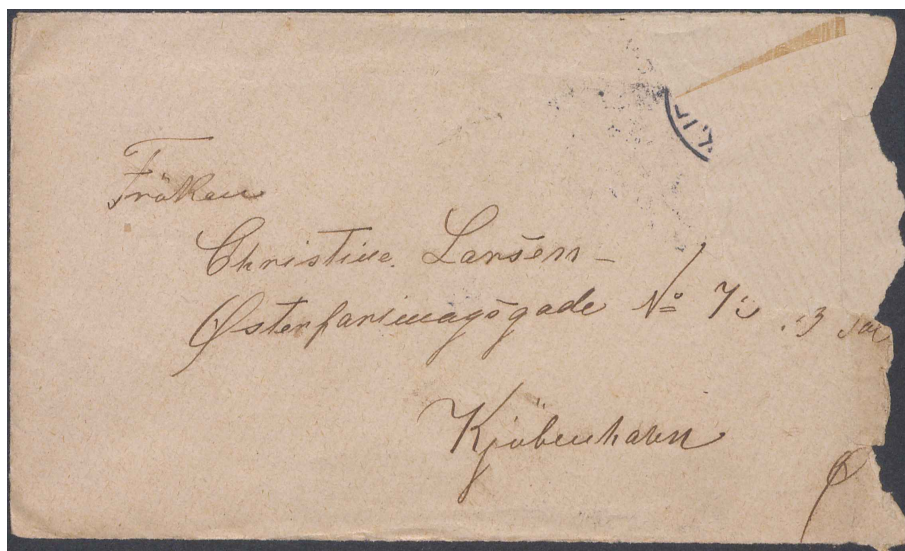 Fröken
Christine Larsen –
Østerfarimagsgade No 7
Kjöbenhavn
Ø